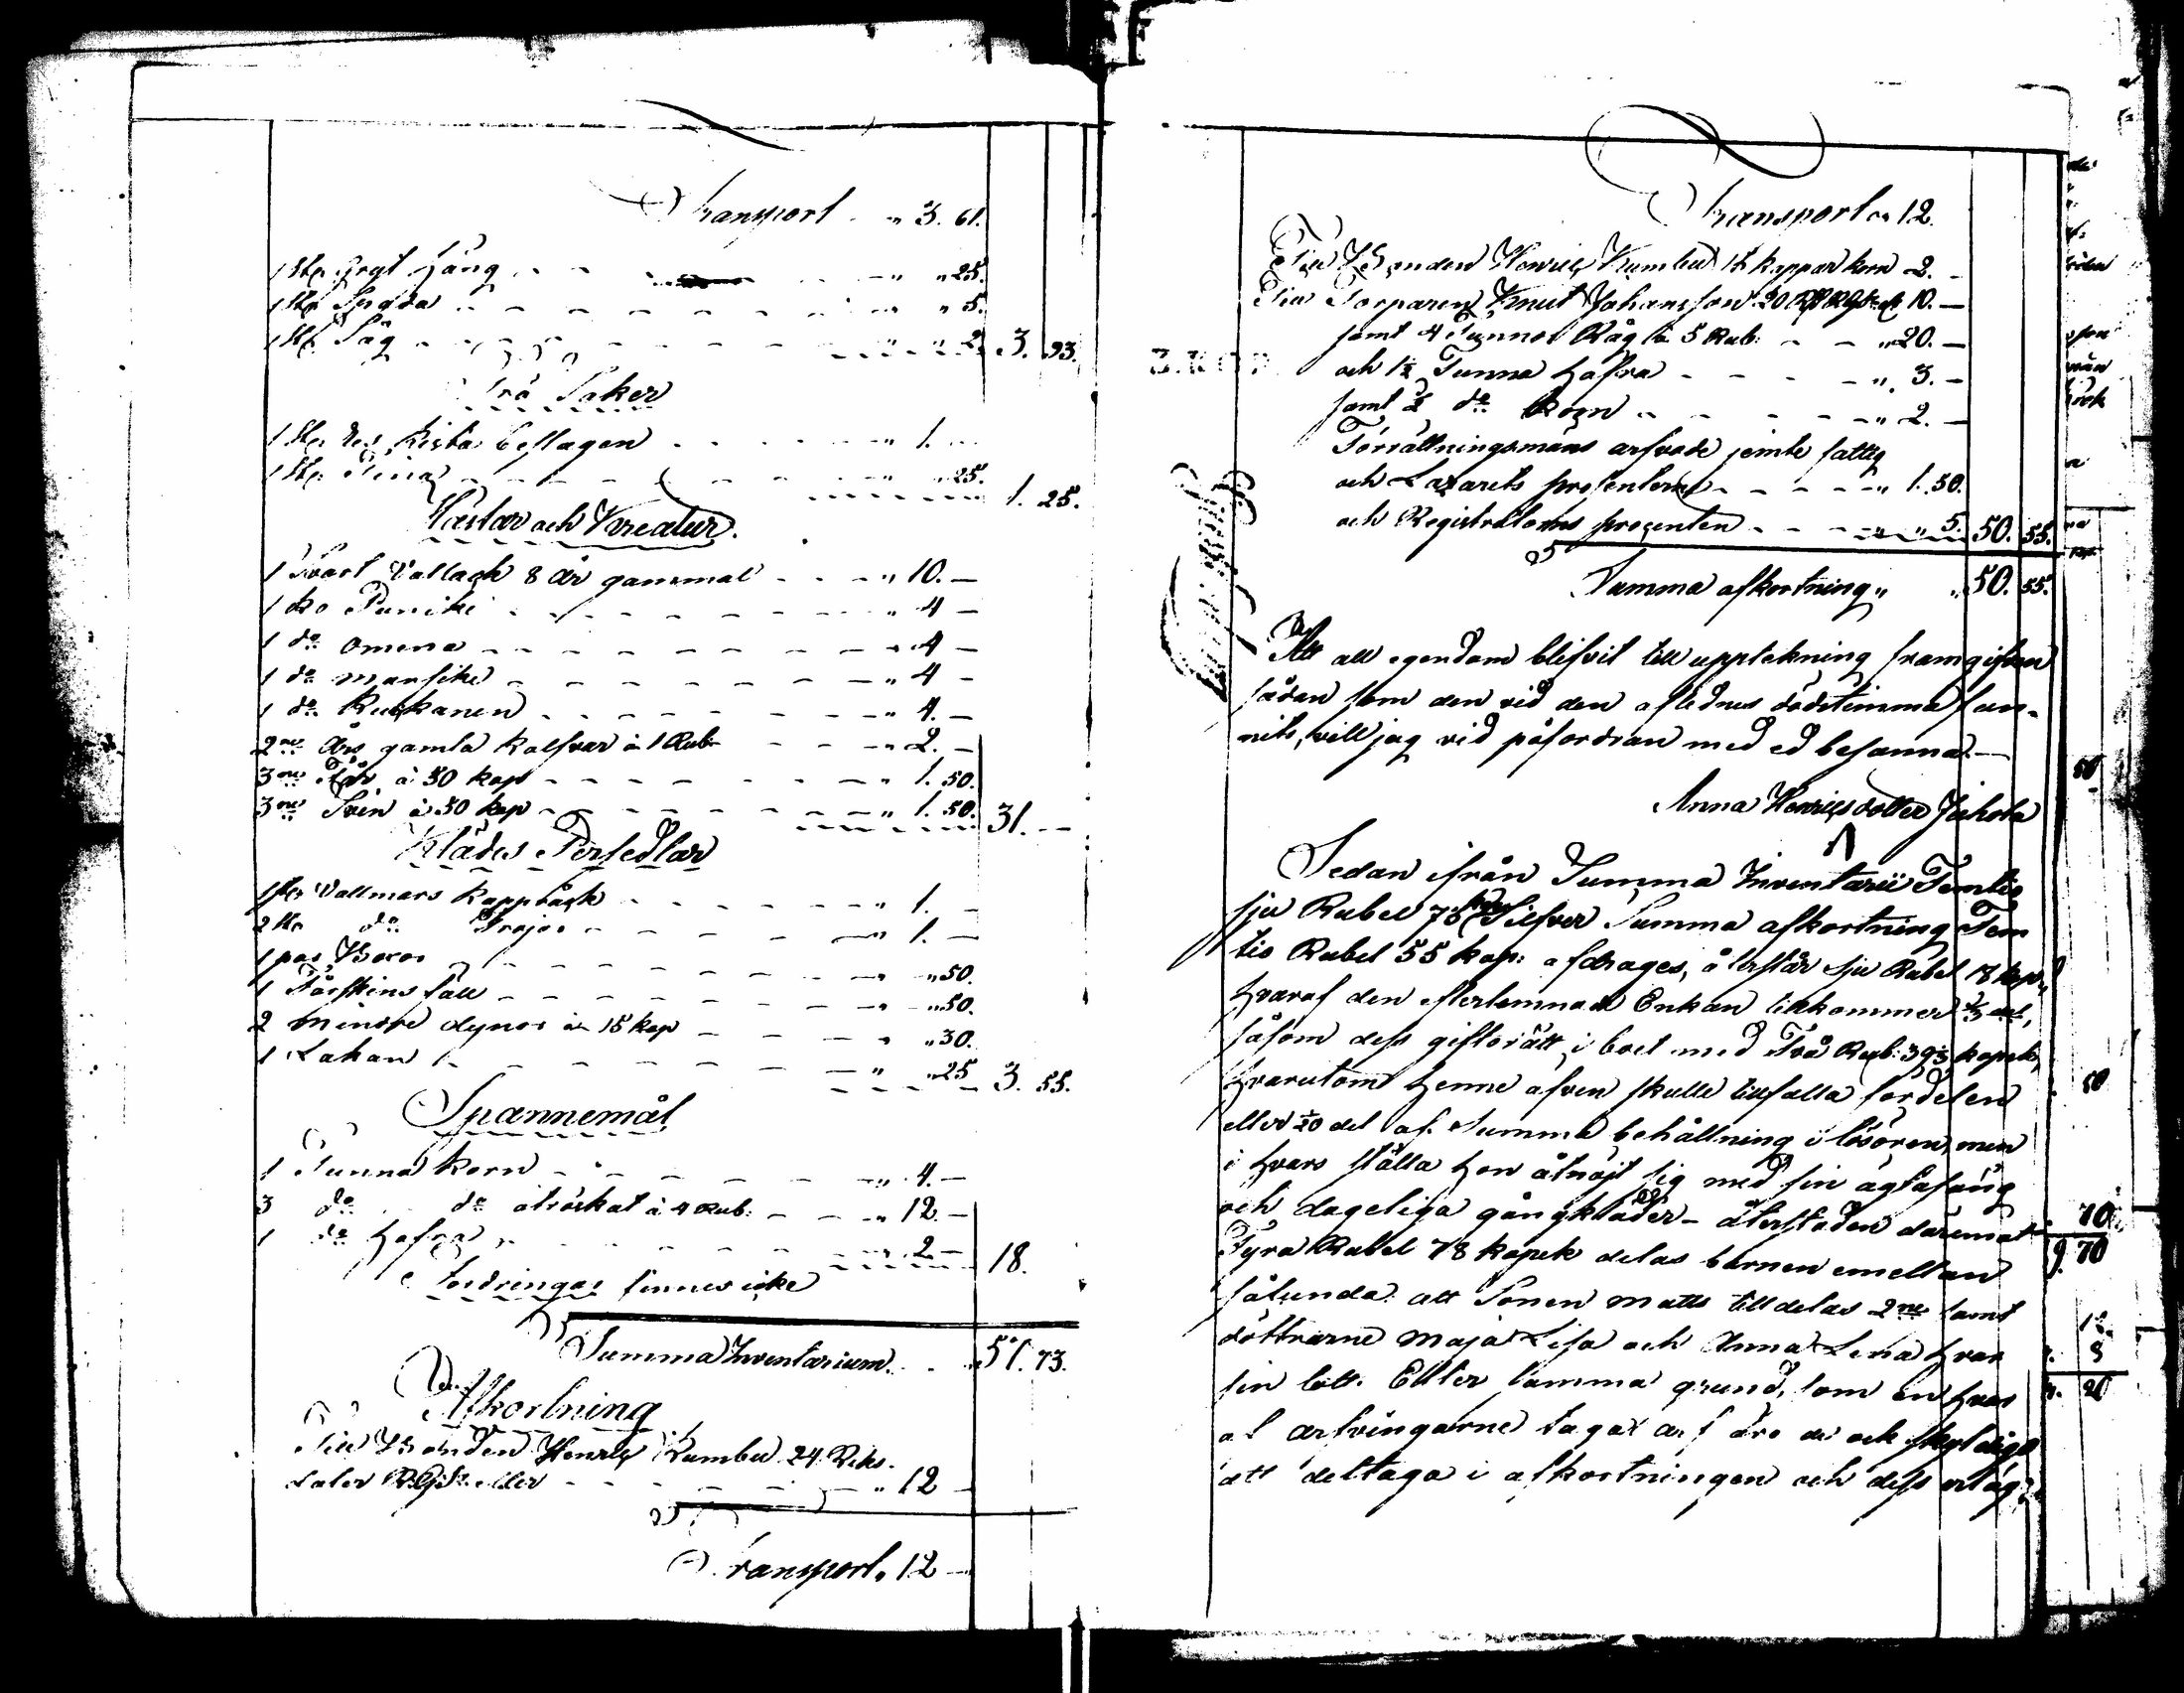 Transport „ 3. 61.
1 St. Gryt häng - - - „ „ 25.
1 St. Spada - - - „ „ 5.
1 St. Såg - - - „ „ 2. 3. 93.
Trä Saker
1 St. kista beslagen - - - „ 1. -
1 St. Tina - - - „ „ 25. 1. 25.
Hästar och Kreatur.
1 Svart Vallack 8 år gammal - - - „ 10. —
1 ko Puniki - - - „ 4 —
1 do Omena - - - „ 4 —
1 do Mansike - - - „ 4 —
1 do Ruskanen - - - „ 4. —
2ne Års gamla kalfvar à 1 Rub. - - „ 2. —
3ne Får à 50 kop - - - „ 1. 50.
3ne Svin à 50 kop - - - „ 1. 50. 31. —
Klädes Persedlar
1 St. Vallmars Kappråck - - - „ 1. —
2 St. do Tröjor - - - „ 1. —
1 par Boxor - - - „ „ 50.
1 Fårskins fäll - - - „ „ 50.
2 mindre dynor à 15 kop - - - „ „ 30.
1 Lakan - - - „ „ 25 3. 55.
Spannemål
1 Tunna Korn - - - „ 4. —
3 do do otröskat à 4 Rub. - - - „ 12. —
1 do Hafra - - - „ 2 — 18.
Fordringar finnes icke
Summa Inventarium. - - „ 57. 73.
Afkortning
Till Bonden Henric Kumbu 24 Riks-
daler RGds eller - - - „ 12 —
Transport „ 12 —
Transport „ 12.
Till Bonden Henric Kumbu 15 kappar korn 2. -
Till Torparen Knut Johansson 20 RD RGds 10. —
samt 4 Tunnor Råg à 5 Rub. - - „ 20. —
och 1½ Tunna Hafra - - - „ 3. —
samt ½ do Korn - - - „ 2. —
Förrättningsmäns arfvode jemte fattig
och Lazarets procenterne - - - „ 1. 50.
och Registrators procenten - - - „ „ 5. 50. 55.
Summa afkortning „ „ 50. 55.
Att all egendom blifvit till upptekning framgifven
sådan som den vid den aflednes dödstimma fun-
nits, vill jag vid påfordran med ed besanna. —
Anna Henricsdotter Jukola
Sedan ifrån Summa Inventarii Femtio
sju Rubel 73 kop Silfver Summa afkortning Fem
tio Rubel 55 kop: afdrages, återstår sju Rubel 18 kop.,
hvaraf den efterlemnade Enkan tillkommer ⅓ del,
såsom dess giftorätt i boet med Två Rub: 39⅓ kopek,
hvarutom henne äfven skulle tillfalla fördelen
eller 1/20 del af Summa behållning i lösören, men
i hvars ställe hon åtnöjt sig med sin ägtasäng
och dageliga gångkläder - återstoden däremot
Fyra Rubel 78 kopek delas barnen emellan
sålunda: att Sonen Matts tilldelas 2ne samt
döttrarne Maja Lisa och Anna Lena hvar
sin lott. Efter samma grund, som en hvar
af arfvingarne taga arf äro de ock skyldiga
att deltaga i afkortningen och dess erläg-